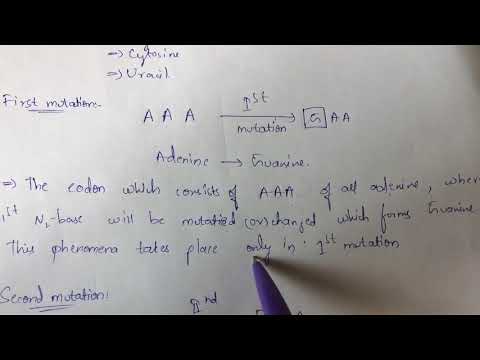 ⇒ Cytosine
⇒ Uracil.
First mutation:-
A A A 1st mutation → G A A
Adenine → Guanine.
⇒ The codon which consists of AAA of all adenine, where
1st N2-base will be mutated (or) changed which forms Guanine
This phenomena takes place only in 1st mutation
Second mutation:
nd